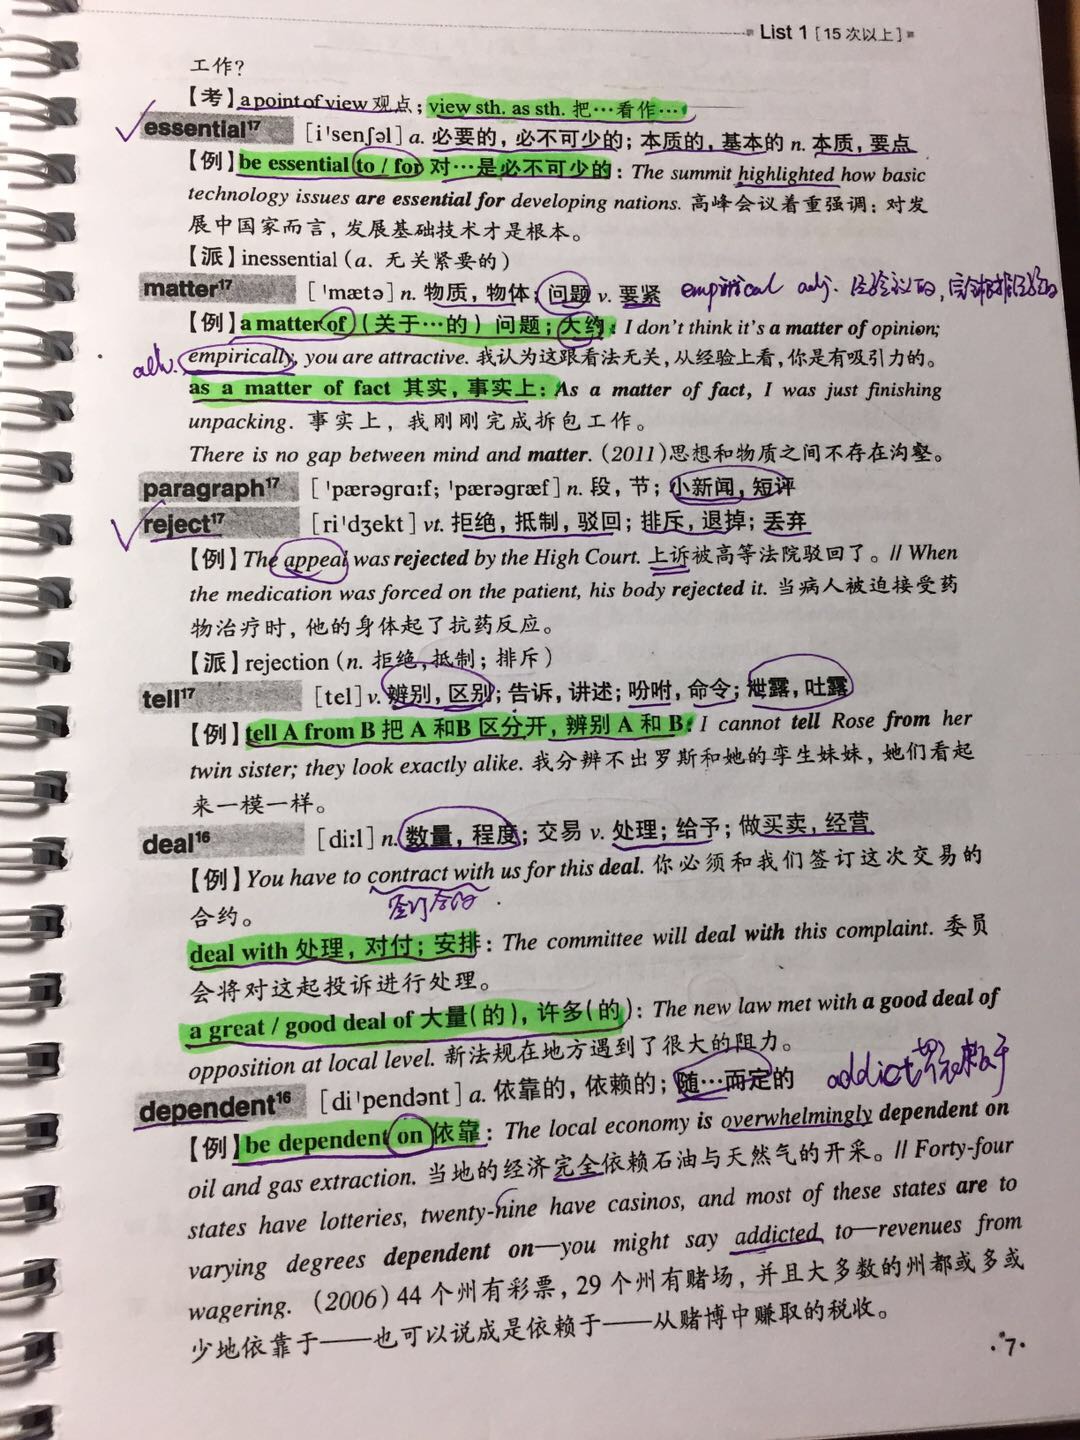 List 1 [15 次以上]
工作?
【考】a point of view 观点; view sth. as sth. 把…看作…
essential17 [iˈsenʃəl] a. 必要的, 必不可少的; 本质的, 基本的 n. 本质, 要点
【例】be essential to / for 对…是必不可少的: The summit highlighted how basic
technology issues are essential for developing nations. 高峰会议着重强调: 对发
展中国家而言, 发展基础技术才是根本。
【派】inessential (a. 无关紧要的)
matter17 [ˈmætə] n. 物质, 物体; 问题 v. 要紧 empirical adj. 经验主义的,
【例】a matter of (关于…的) 问题; 大约: I don't think it's a matter of opinion;
adv. empirically, you are attractive. 我认为这跟看法无关, 从经验上看, 你是有吸引力的。
as a matter of fact 其实, 事实上: As a matter of fact, I was just finishing
unpacking. 事实上, 我刚刚完成拆包工作。
There is no gap between mind and matter. (2011)思想和物质之间不存在沟壑。
paragraph17 [ˈpærəgrɑːf; ˈpærəgræf] n. 段, 节; 小新闻, 短评
reject17 [riˈdʒekt] vt. 拒绝, 抵制, 驳回; 排斥, 退掉; 丢弃
【例】The appeal was rejected by the High Court. 上诉被高等法院驳回了。// When
the medication was forced on the patient, his body rejected it. 当病人被迫接受药
物治疗时, 他的身体起了抗药反应。
【派】rejection (n. 拒绝,抵制; 排斥)
tell17 [tel] v. 辨别, 区别; 告诉, 讲述; 吩咐, 命令; 泄露, 吐露
【例】tell A from B 把 A 和B 区分开, 辨别 A 和 B: I cannot tell Rose from her
twin sister; they look exactly alike. 我分辨不出罗斯和她的孪生妹妹, 她们看起
来一模一样。
deal16 [diːl] n. 数量, 程度; 交易 v. 处理; 给予; 做买卖, 经营
【例】You have to contract with us for this deal. 你必须和我们签订这次交易的
签订合同
合约。
deal with 处理, 对付; 安排: The committee will deal with this complaint. 委员
会将对这起投诉进行处理。
a great / good deal of 大量(的), 许多(的): The new law met with a good deal of
opposition at local level. 新法规在地方遇到了很大的阻力。
dependent16 [diˈpendənt] a. 依靠的, 依赖的; 随…而定的 addict
【例】be dependent on 依靠: The local economy is overwhelmingly dependent on
oil and gas extraction. 当地的经济完全依赖石油与天然气的开采。// Forty-four
states have lotteries, twenty-nine have casinos, and most of these states are to
varying degrees dependent on—you might say addicted to—revenues from
wagering. (2006) 44 个州有彩票, 29 个州有赌场, 并且大多数的州都或多或
少地依靠于——也可以说成是依赖于——从赌博中赚取的税收。
·7·